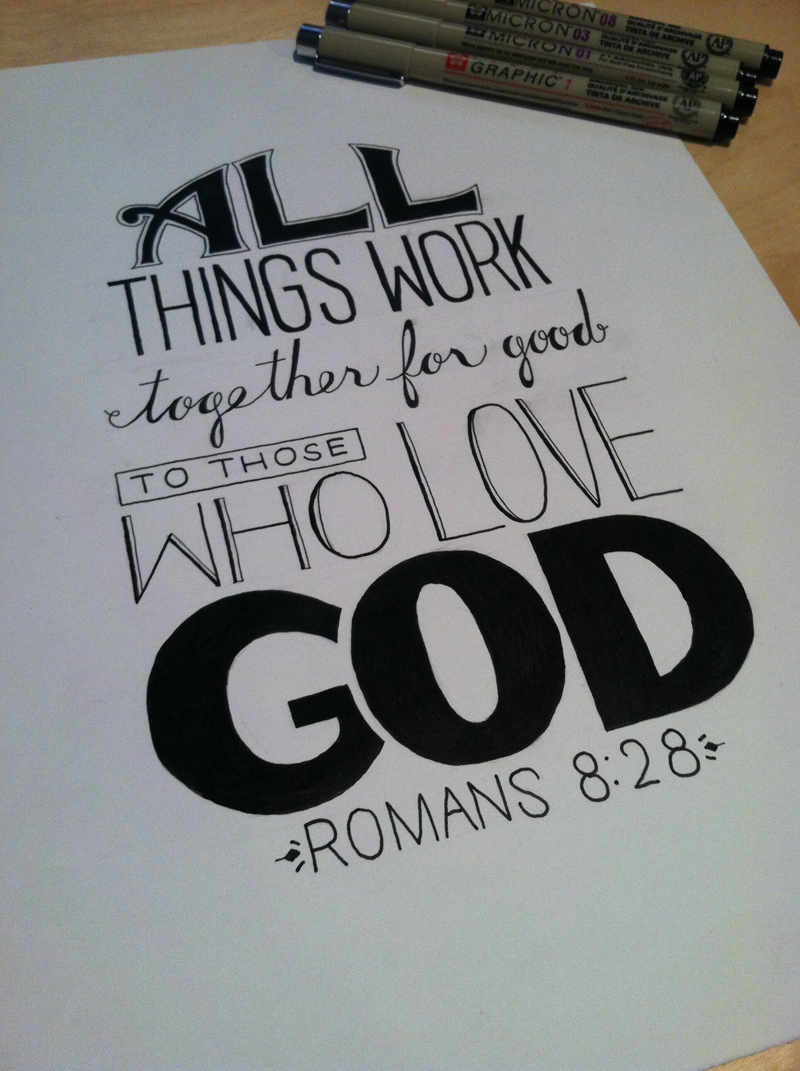 MICRON 08
QUALITÉ D'ARCHIVAGE
TINTA DE ARCHIVE
MICRON 03
QUALITÉ D'ARCHIVAGE
TINTA DE ARCHIVE
MICRON 01
GRAPHIC 1
QUALITÉ D'ARCHIVAGE
TINTA DE ARCHIVE
ALL
THINGS WORK
together for good
TO THOSE
WHO LOVE
GOD
ROMANS 8:28